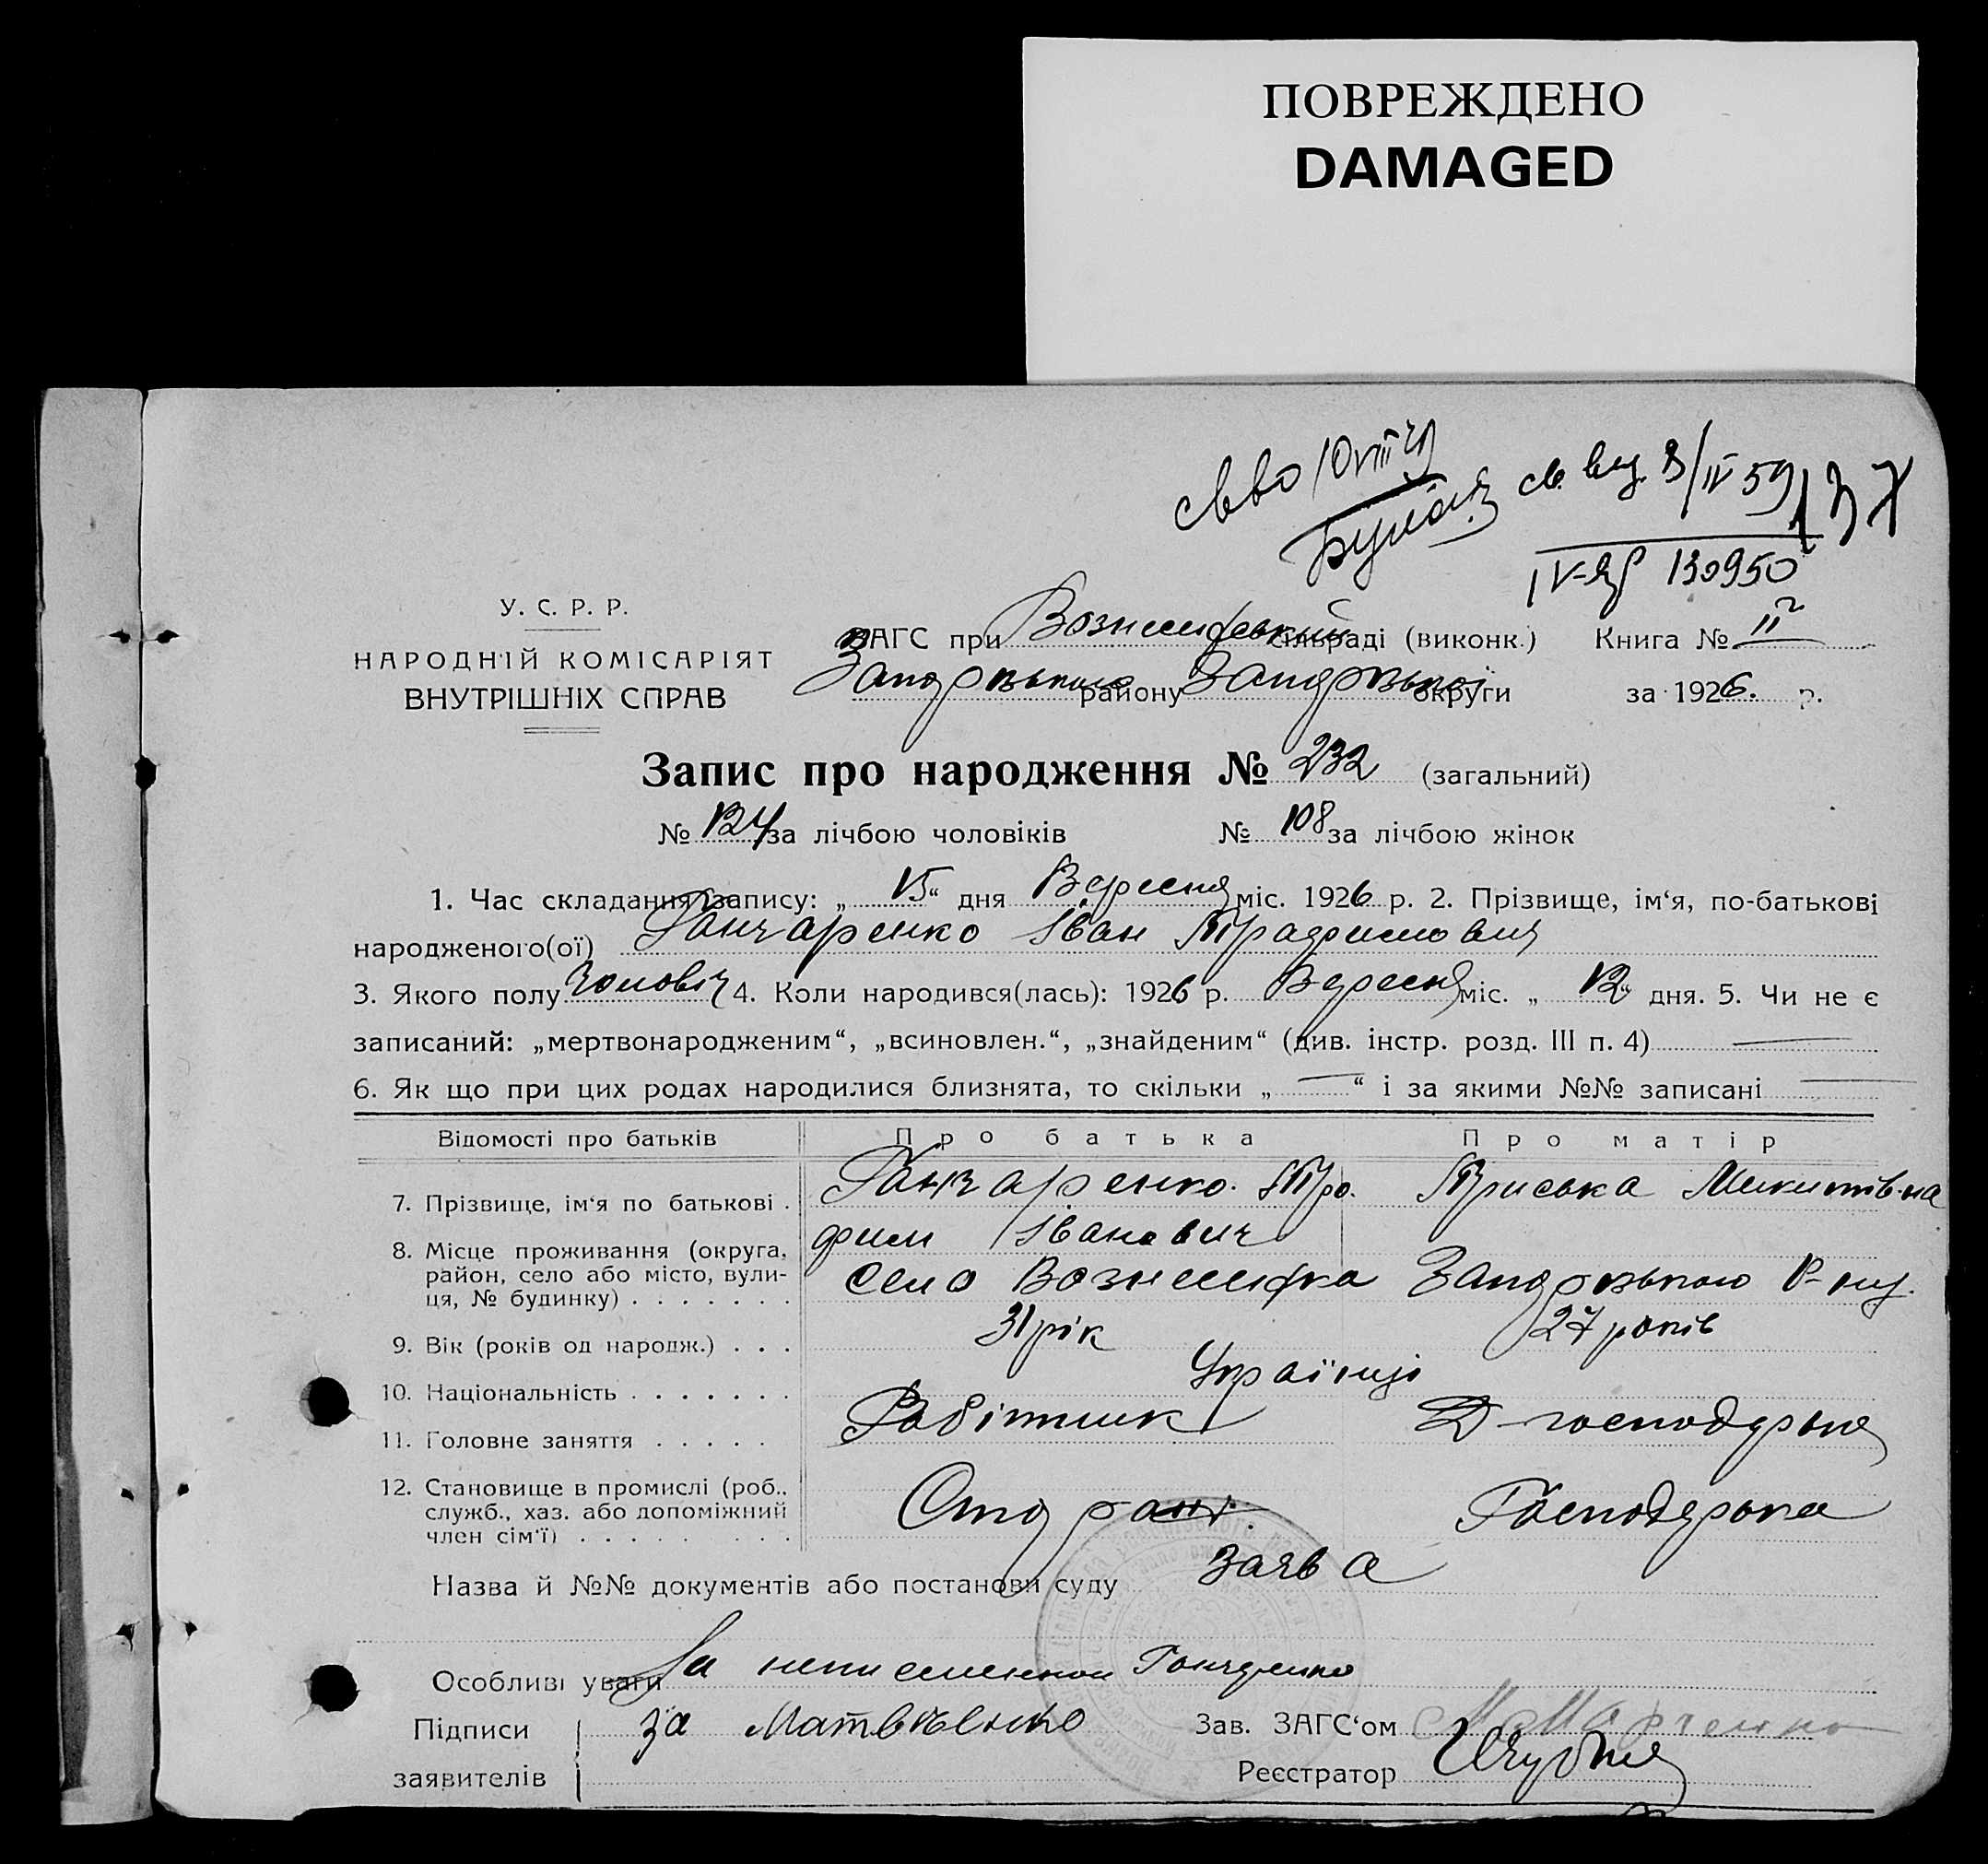 ПОВРЕЖДЕНО
DAMAGED
св. вид. 8/IV 59
IV-ЯР 130950
137
У. С. Р. Р.
НАРОДНІЙ КОМІСАРІЯТ
ВНУТРІШНІХ СПРАВ
ЗАГС при Вознесенський сільраді (виконк.) Книга № II
Запорізького району Запорізької округи за 1926. р.
Запис про народження № 232 (загальний)
№ 124 за лічбою чоловіків № 108 за лічбою жінок
1. Час складання запису: „ 15 “ дня Вересня міс. 1926 р. 2. Прізвище, ім‘я, по-батькові
народженого(ої) Гончаренко Іван Трофимович
3. Якого полу Чоловіч 4. Коли народився(лась): 1926 р. Вересня міс. „ 12 “ дня. 5. Чи не є
записаний: „мертвонародженим“, „всиновлен.“, „знайденим“ (див. інстр. розд. III п. 4) —
6. Як що при цих родах народилися близнята, то скільки „ — “ і за якими №№ записані —
Відомості про батьків Про батька Про матір
7. Прізвище, ім‘я по батькові . Гончаренко. Тро. Пріська Микитівна
фим Іванович
8. Місце проживання (округа, район, село або місто, вулиця, № будинку) . . . . . . . село Вознесенка Запорізького Р-ну.
9. Вік (років од народж.) . . . 31 рік 27 років
10. Національність . . . . . . . Українці
11. Головне заняття . . . . . Робітник Д-господарка
12. Становище в промислі (роб., служб., хаз. або допоміжний член сім‘ї) . . . . . . . . Господарка
Назва й №№ документів або постанови суду заява
Особливі уваги За неписьменного Гончаренко
Підписи за Матвієнко Зав. ЗАГС‘ом Марченко
заявителів Реєстратор